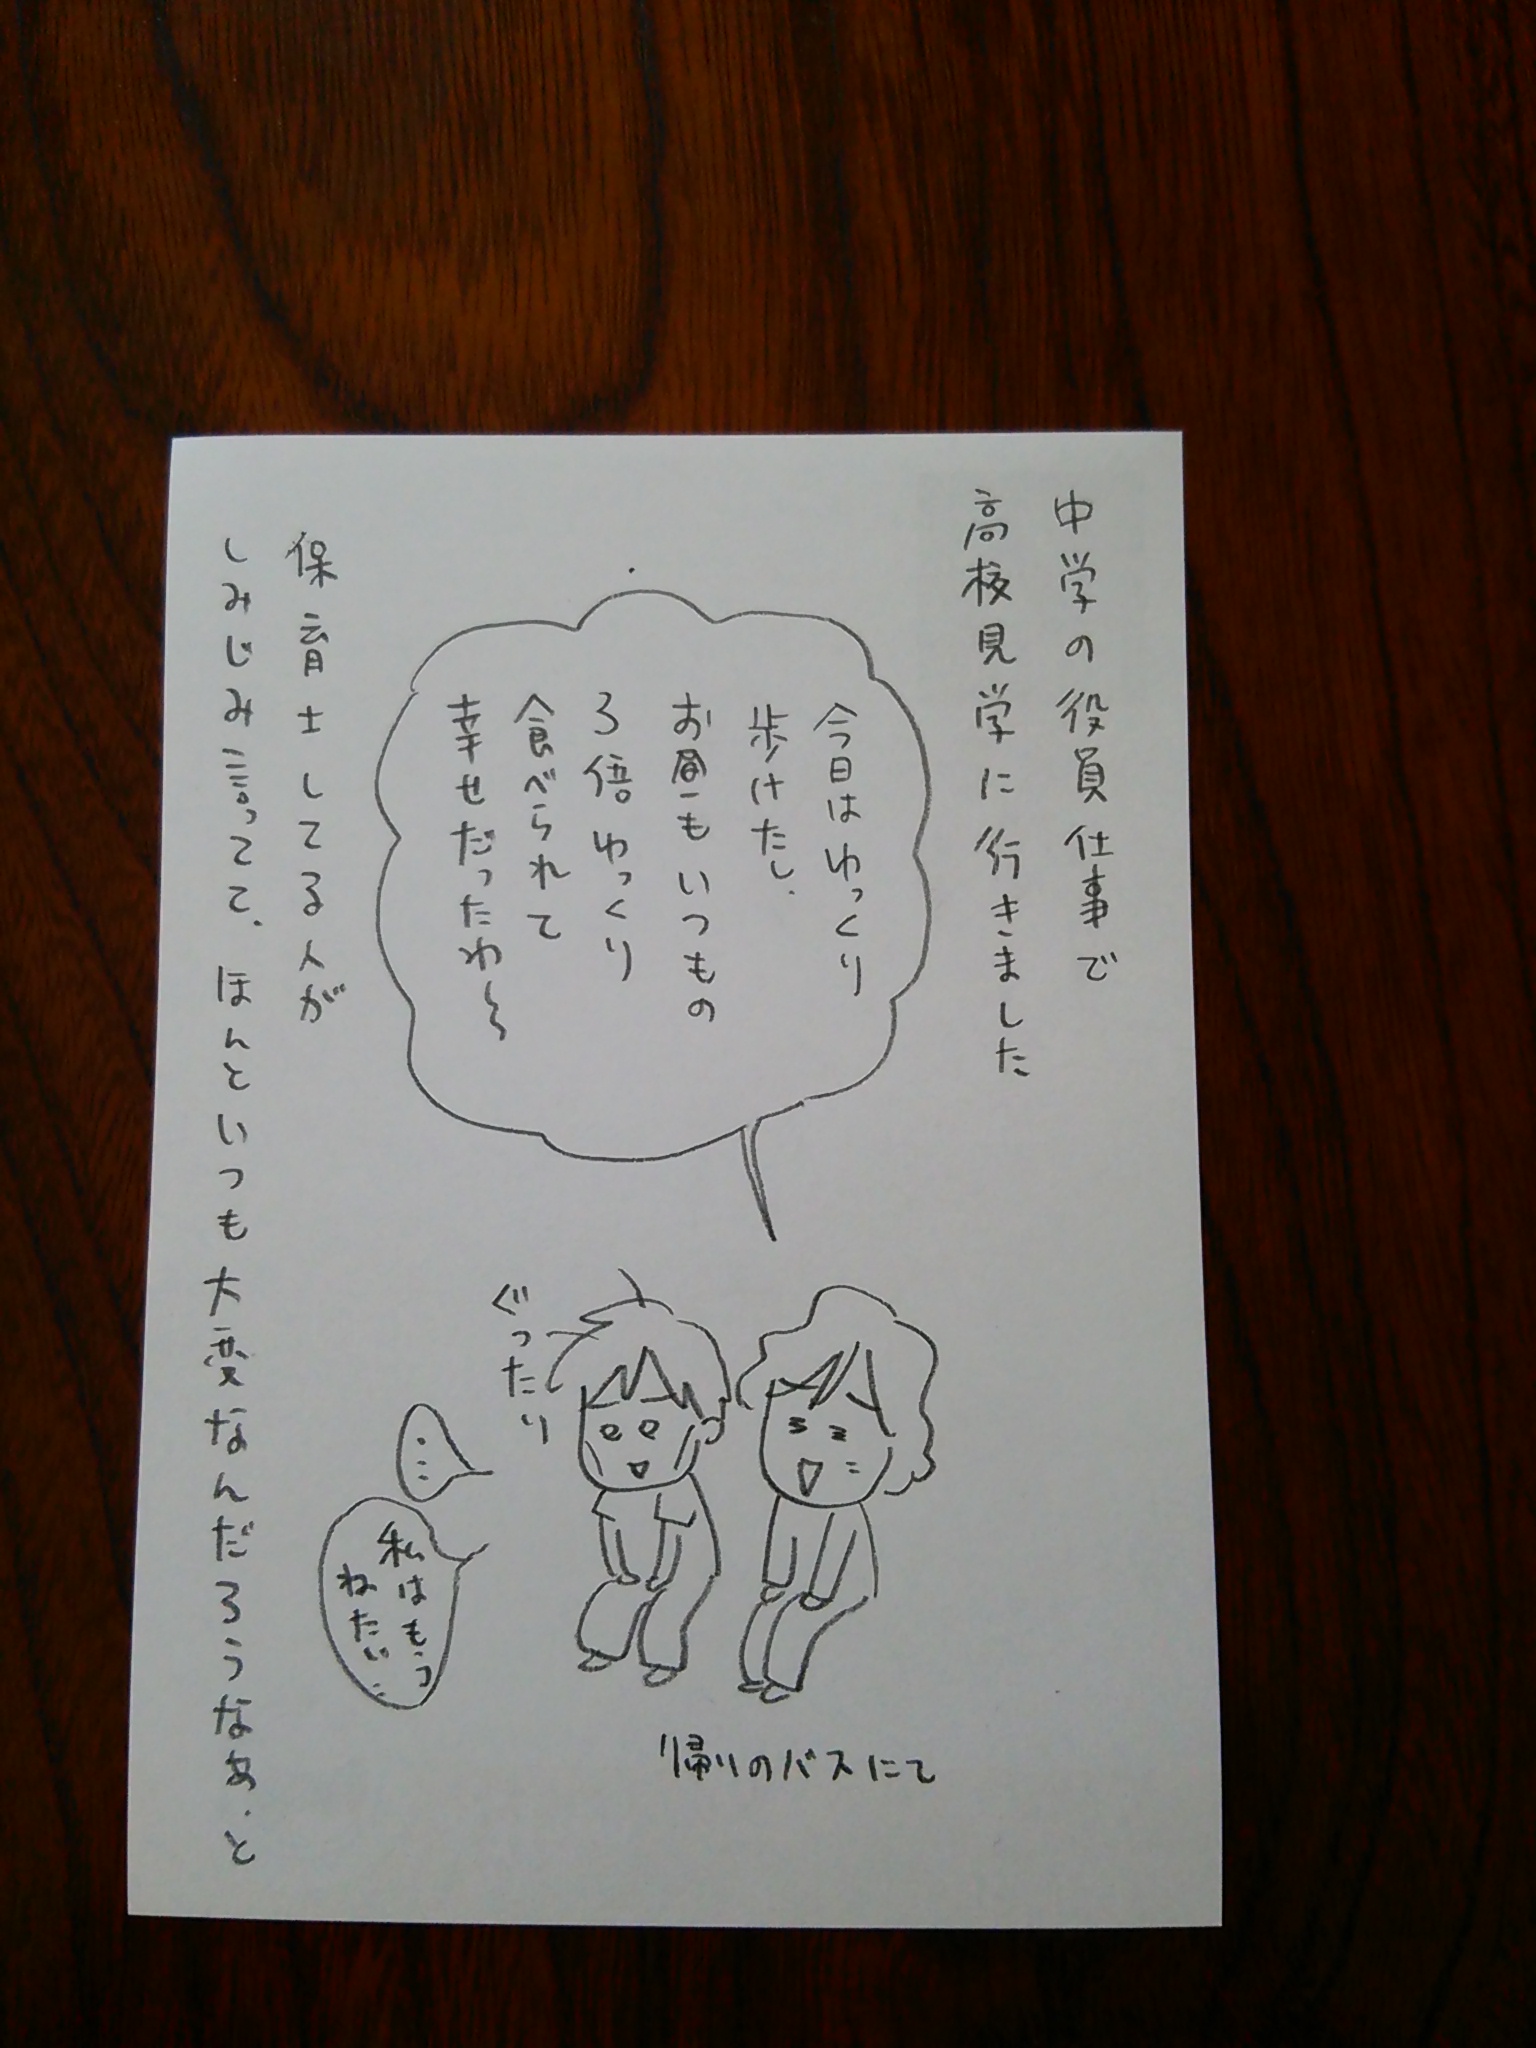 中学の役員仕事で
高校見学に行きました
今日はゆっくり
歩けたし、
お昼もいつもの
3倍ゆっくり
食べられて
幸せだったわ〜
ぐったり
…
私はもう
ねたい…
帰りのバスにて
保育士してる人が
しみじみ言ってて、ほんといつも大変なんだろうなあ、と